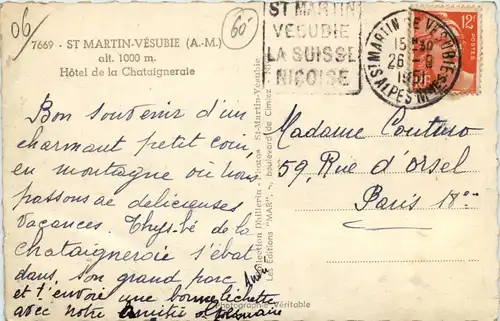 06/
60-
7669 - ST MARTIN-VÉSUBIE (A.-M.)
alt. 1000 m.
Hôtel de la Chataigneraie
ST MARTIN
VESUBIE
LA SUISSE
NIÇOISE
ST MARTIN DE VESUBIE
15 H 30
26 - 9
1951
ALPES MMES
12F
POSTES
Bon souvenir d'un
charmant petit coin
en montagne où nous
passons de délicieuses
vacances. Thys-bé de la
Chataigneraie s'ébat
dans son grand parc
et t'envoie une bonne lichette
avec notre amitié
Madame Couturo
59, Rue d'Orsel
Paris 18e
Collection Dhillerin - Photos St-Martin-Vésubie
Les Editions "MAR" - , boulevard de Cimiez
Photographie Véritable